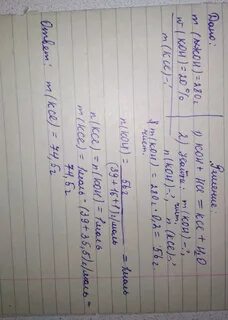 Дано:
m(р-KOH) = 280г
w(KOH) = 20%
m(KCl)-?
Решение:
1) KOH + HCl = KCl + H2O
2) Найти: m(KOH)-?,
чист.
n(KOH)-?, n(KCl)-?
3 m(KOH) = 280г · 0,2 = 56г
чист.
n(KOH) = 56г / (39+16+1)г/моль = 1моль
n(KCl) = n(KOH) = 1моль
m(KCl) = 1моль · (39+35,5)г/моль =
74,5г
Ответ: m(KCl) = 74,5г